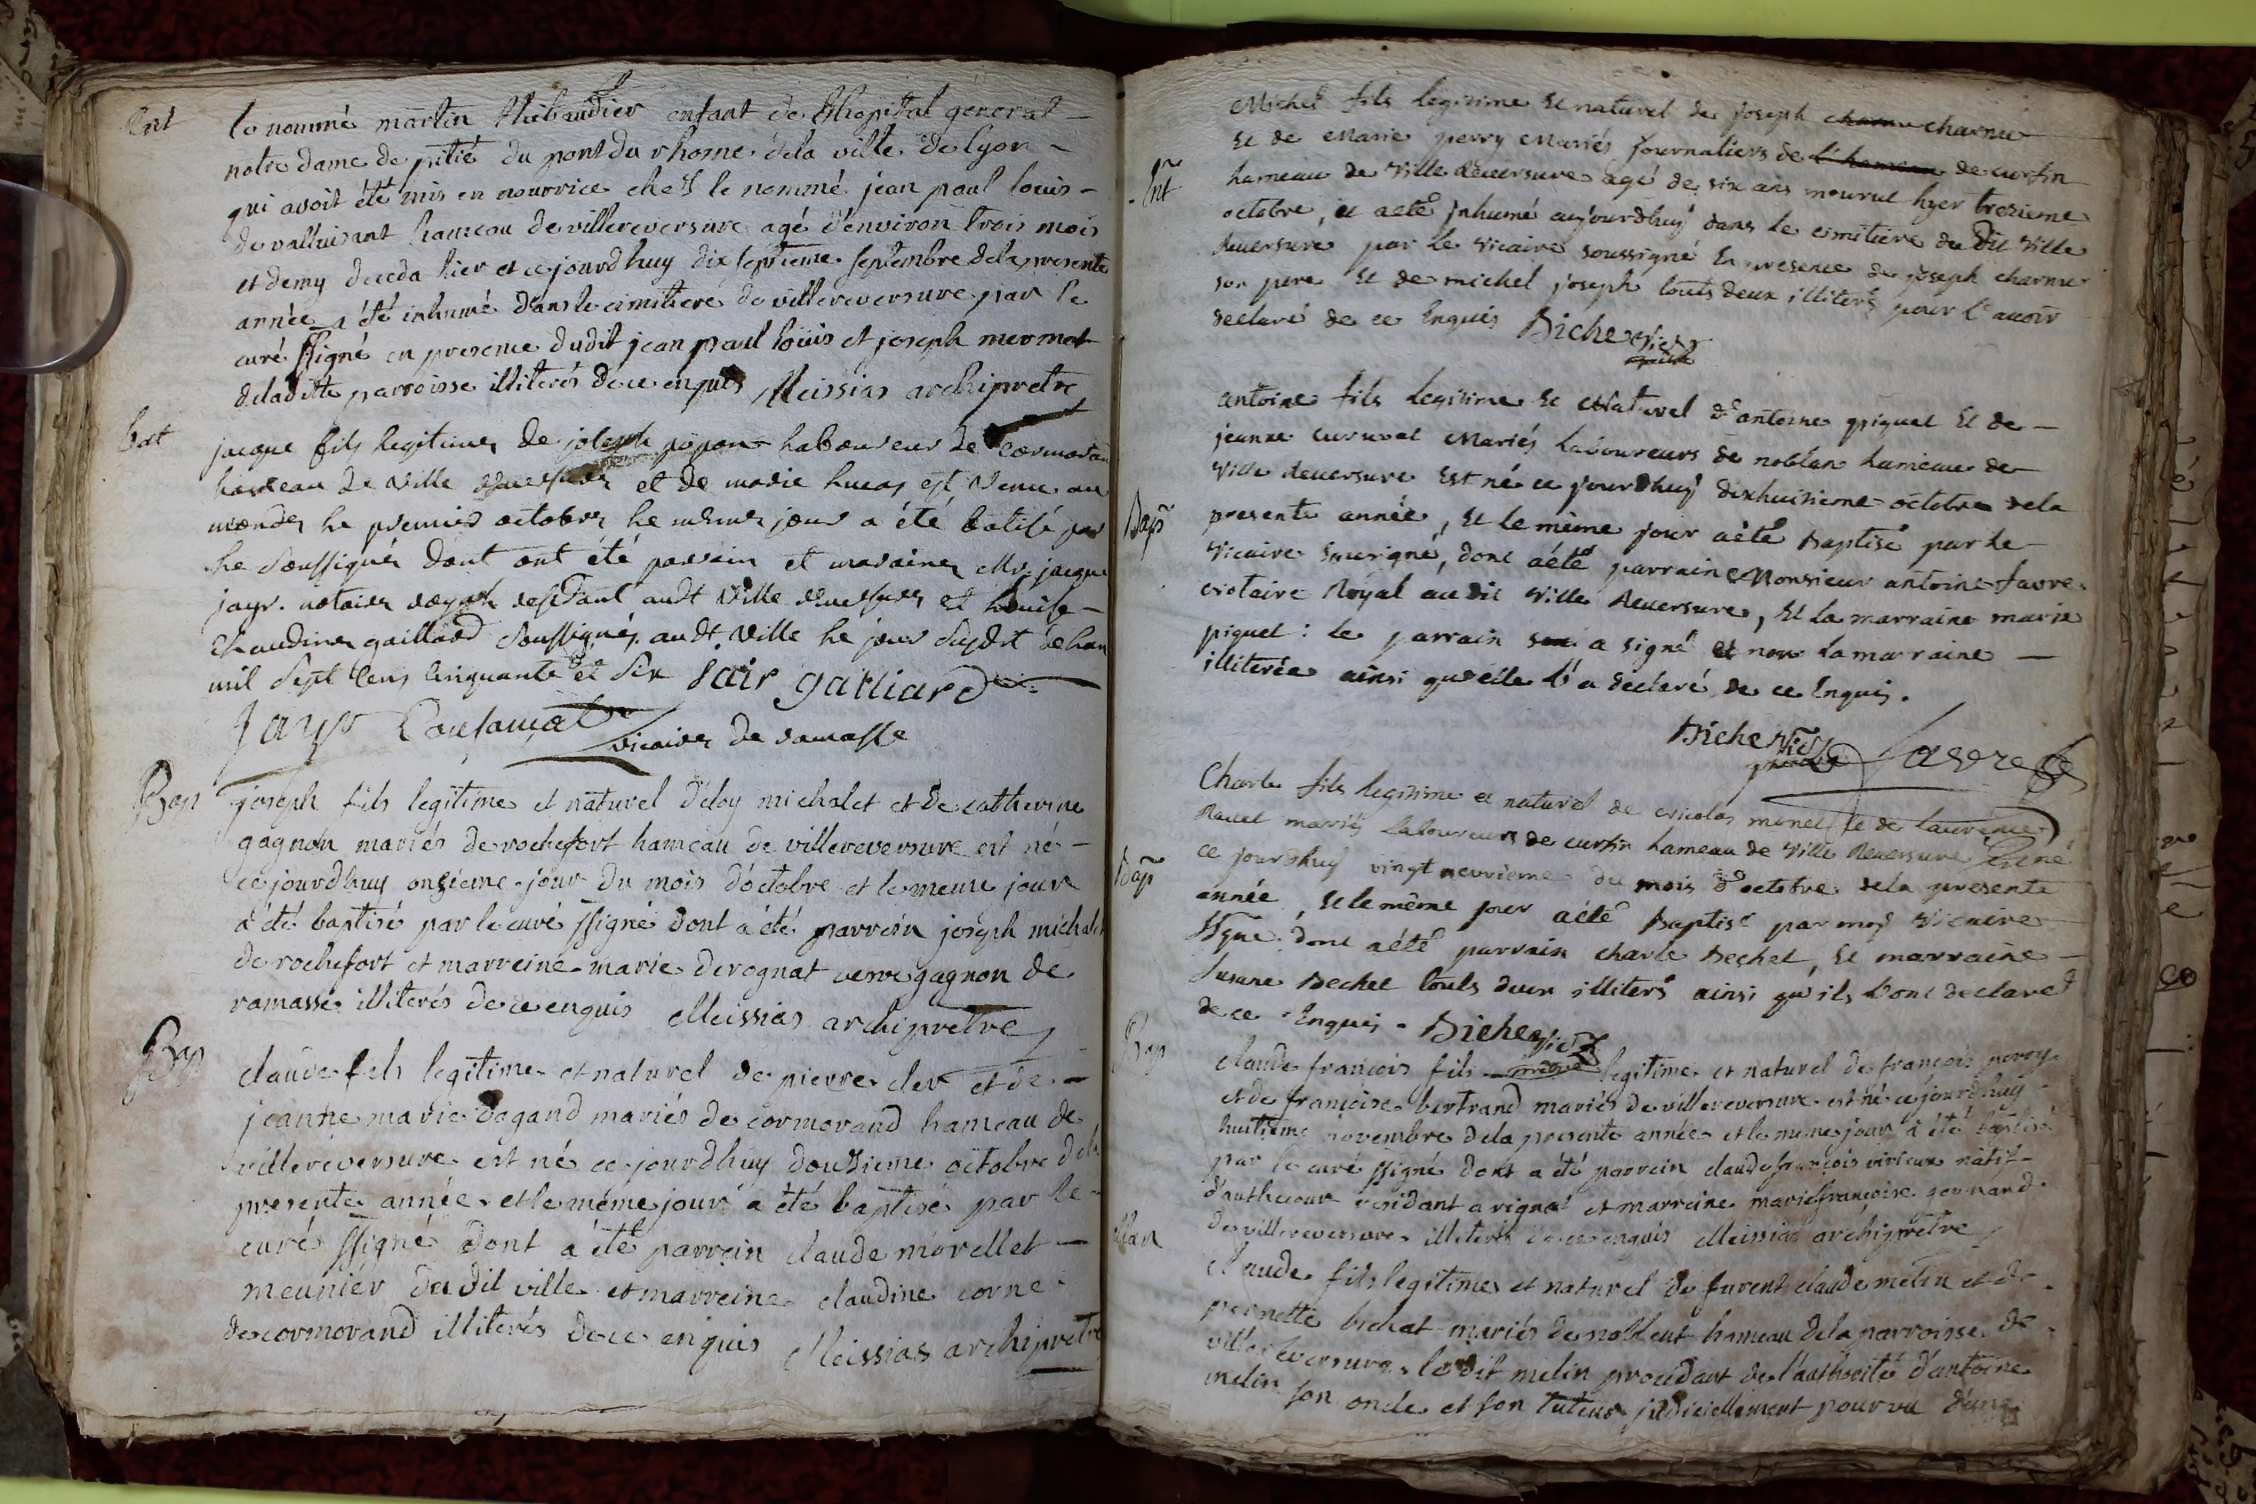 Ent
le nommé martin Thibaudier enfant de l'hopital géneral
notre dame de pitié du pont du rhone dela ville de lyon
qui avoit été mis en nourrice chez le nommé jean paul louis
de valluisant hameau de villereversure agé d'environ trois mois
et demy deceda hier et cejourdhuy dix septieme septembre dela presente
année a été inhumé dans le cimitiere de villereversure par le
curé ssigné en presence dudit jean paul loüis et joseph mermet
deladitte parroisse illiterés dece enquis Meissias archipretre
bat
jacque fils legitimes de joseph popon laboureur de cormoran
hameau de ville reversure et de marie lucas est venu au
monder le premier octobre le mesme jour a été batisé par
le soussigné dont ont été parrain et maraine Mr. jacque
jayr. notaire royal residant audt ville reversure et louise
claudine gaillard soussignés audt ville le jour susdit de lan
mil sept cens cinquante et six Jair gailliard
Jayr vicaire de ramasse
Bap
joseph fils legitime et naturel d'eloy michalet et de catherine
gagnon mariés de rochefort hameau de villereversure est né
cejourdhuy onzieme jour du mois d'octobre et le meme jour
a été baptisé par le curé ssigné dont a été parrein joseph michalet
de rochefort et marreine marie derognat veuve gagnon de
ramasse illiterés de ce enquis Meissias archipretre
Bap
claude fils legitime et naturel de pierre cler et de
jeanne marie dagand mariés de cormorand hameau de
villereversure est né ce jourdhuy douzieme octobre dela
presente année et le même jour a été baptisé par le
curé ssigné dont a été parrein claude morellet
meunier du dit ville et marreine claudine corne
de cormorand illiterés de ce enquis Meissias archipretre
Ent
Michel fils legitime et naturel de joseph charnu
et de Marie perry Mariés journaliers de l'hameau de curfin
hameau de ville Reversure agé de six ans mourut hyer trezieme
octobre, et aété jnhumé aujourdhuy dans le cimitiere du dit ville
Reversure par le vicaire soussigné en presence de joseph charnu
son pere et de michel joseph touts deux illiterés pour l'avoir
declaré de ce Enquis Biche vic
Bap
antoine fils legitime et Naturel d'antoine piquet et de
jeanne Mariés laboureurs de noblan hameau de
ville Reversure est né ce jourdhuy dixhuitieme octobre dela
presente année, et le même jour aété Baptisé par le
vicaire sousigné, dont aété parrain Monsieur antoine favre
Notaire Royal au dit ville Reversure, et la marraine marie
piquet: le parrain a signé et non la marraine
illiterée ainsi qu'elle l'a declaré de ce Enquis.
Biche vic favre
Bap
Charle fils legitime et naturel de Nicolas minet et de laurence
Ravet mariés laboureurs de curfin hameau de ville Reversure est né
ce jourdhuy vingt neuvieme du mois d'octobre dela presente
année, et le même jour aété Baptisé par moy vicaire
ssigné dont aété parrain charle Bechet, et marraine
susane Bechet touts deux illiterés ainsi qu'ils l'ont declaré
de ce Enquis. Biche vic
Bap
claude françois fils legitime et naturel de françois perry
et de françoise bertrand mariés de villereversure est né ce jourdhuy
huitieme novembre dela presente année et le meme jour a été baptisé
par le curé ssigné dont a été parrein claude françois natif
résidant a rignat et marreine marie françoise gounand
de villereversure illiterés de ce enquis Meissias archipretre
Mar
claude fils legitime et naturel de furent claude melin et de
pernette bichat mariés de noblent hameau dela parroisse de
villereversure le dit melin procedant de l'authorité d'antoine
melin son oncle et son tuteur judiciellement pourvu d'une